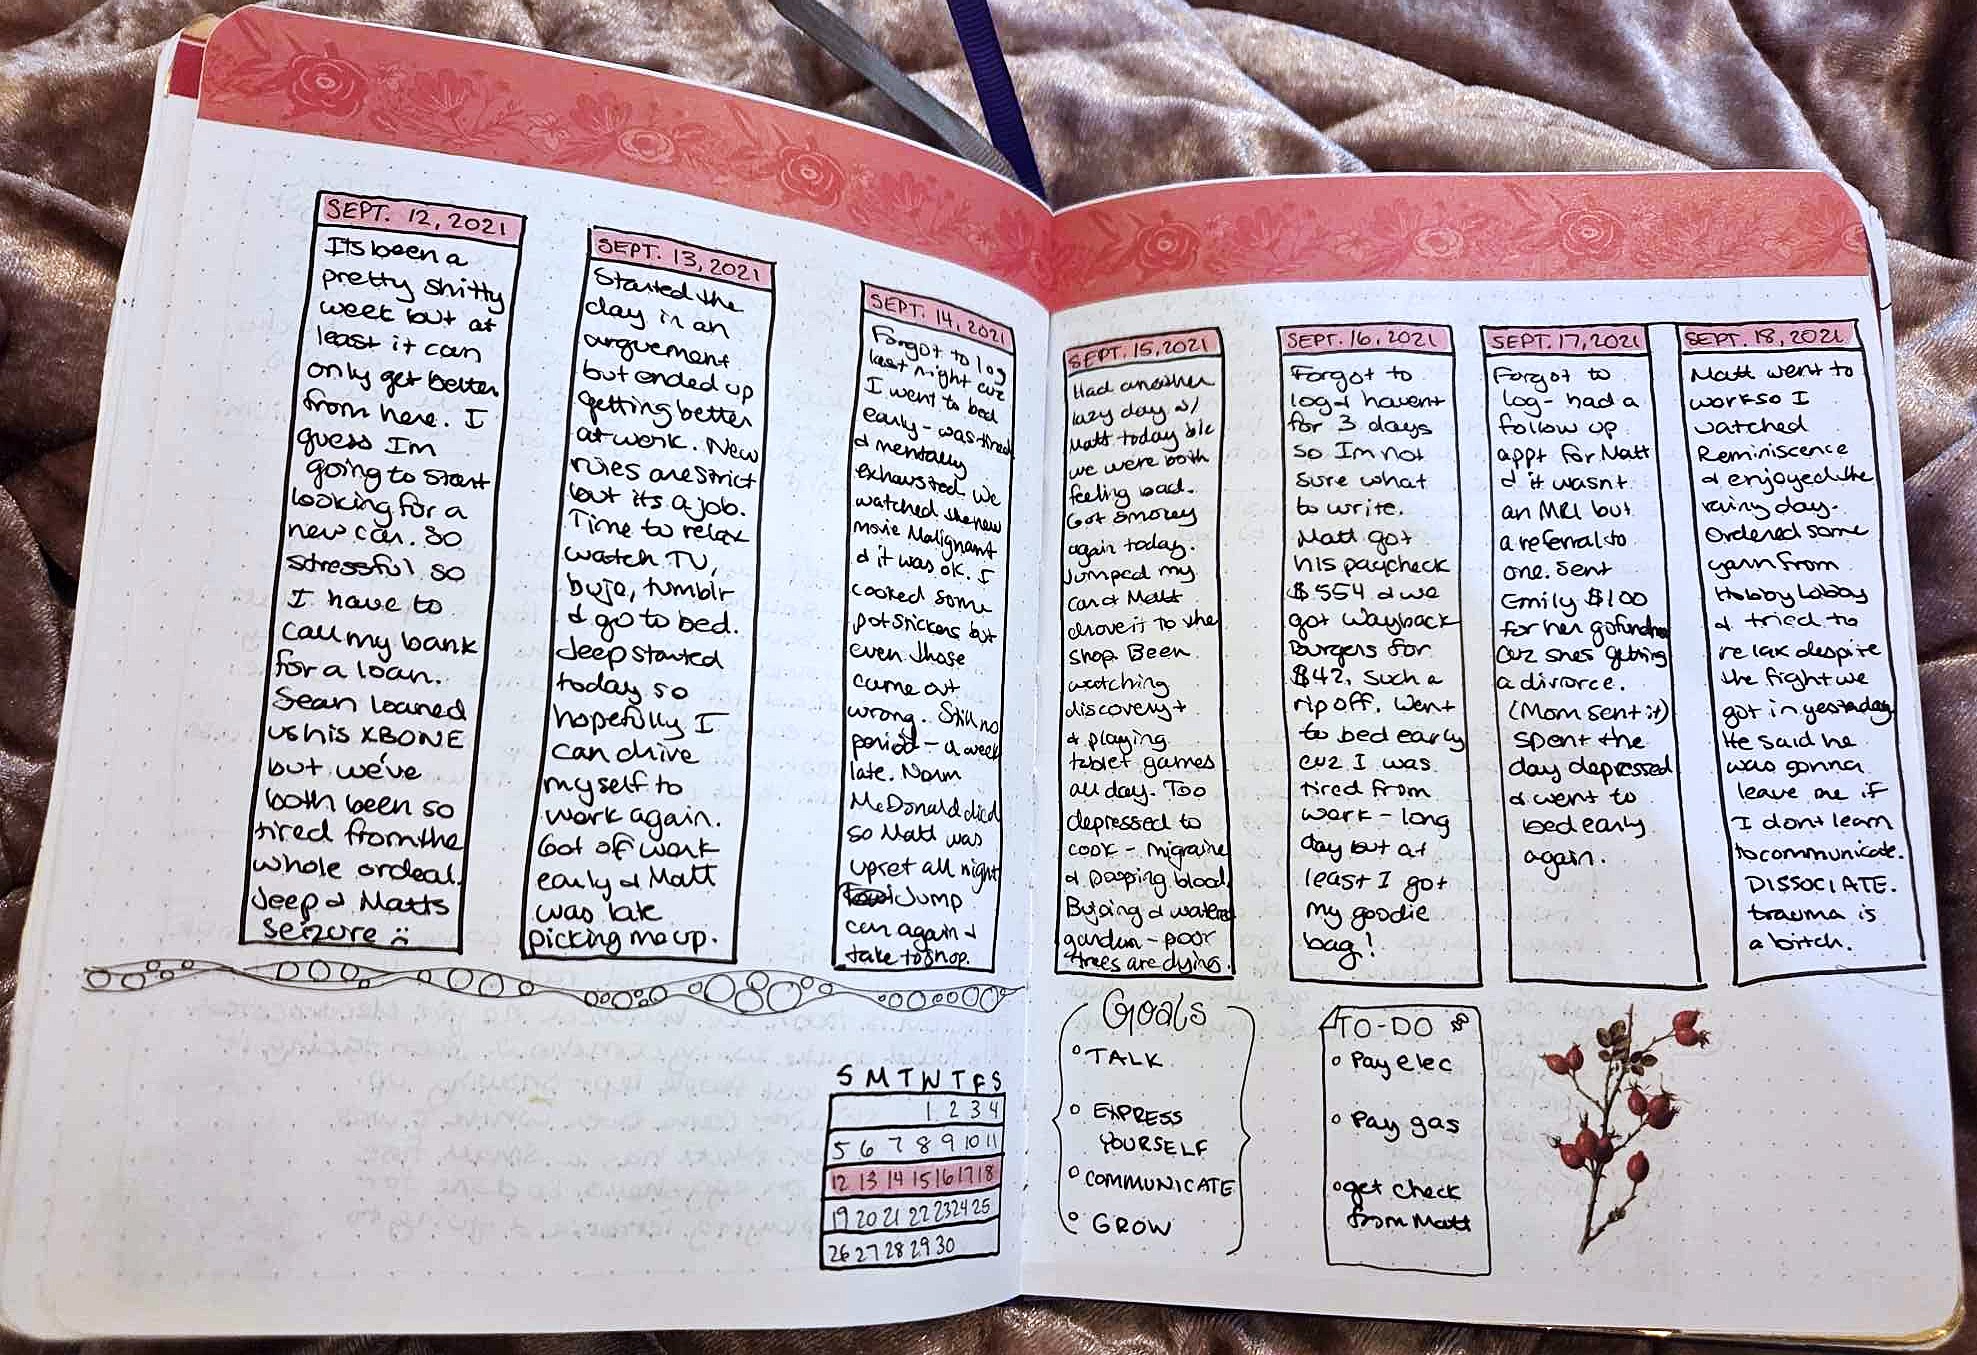 SEPT. 12, 2021
Its been a
pretty shitty
week but at
least it can
only get better
from here. I
guess Im
going to start
looking for a
new car. So
stressful so
I have to
call my bank
for a loan.
Sean loaned
us his XBONE
but we've
both been so
tired from the
whole ordeal.
Jeep & Matts
Seizure :(
SEPT. 13, 2021
Started the
day in an
arguement
but ended up
getting better
at work. New
rules are strict
but its a job.
Time to relax
watch TV,
bujo, tumblr
& go to bed.
Jeep started
today so
hopefully I
can drive
myself to
work again.
Got of work
early & Matt
was late
picking me up.
SEPT. 14, 2021
Forgot to log
last night cuz
I went to bed
early - was tired
& mentally
exhausted. We
watched the new
movie Malignant
& it was ok. I
cooked some
potstickers but
even those
came out
wrong. Still no
period - a week
late. Norm
McDonald died
so Matt was
upset all night
Jump
car again &
take to shop.
SEPT. 15, 2021
Had another
lazy day w/
Matt today b/c
we were both
feeling bad.
Got smokey
again today.
Jumped my
car & Matt
drove it to the
shop. Been
watching
discovery+
& playing
tablet games
all day. Too
depressed to
cook - migraine
& pooping blood.
Bujoing & watered
garden - poor
trees are dying.
SEPT. 16, 2021
Forgot to
log & havent
for 3 days
so Im not
sure what
to write.
Matt got
his paycheck
$554 & we
got Wayback
Burgers for
$42. Such a
rip off. Went
to bed early
cuz I was
tired from
work - long
day but at
least I got
my goodie
bag!
SEPT. 17, 2021
Forgot to
log - had a
follow up
appt for Matt
& it wasnt
an MRI but
a referral to
one. Sent
Emily $100
for her gofundme
cuz shes getting
a divorce.
(Mom sent it)
spent the
day depressed
& went to
bed early
again.
SEPT. 18, 2021
Matt went to
work so I
watched
Reminiscence
& enjoyed the
rainy day.
Ordered some
yarn from
Hobby Lobby
& tried to
relax despite
the fight we
got in yesterday
He said he
was gonna
leave me if
I dont learn
to communicate.
DISSOCIATE.
trauma is
a bitch.
S M T W T F S
1 2 3 4
5 6 7 8 9 10 11
12 13 14 15 16 17 18
19 20 21 22 23 24 25
26 27 28 29 30
Goals
TALK
EXPRESS
YOURSELF
COMMUNICATE
GROW
TO-DO
Pay elec
Pay gas
get check
from Matt